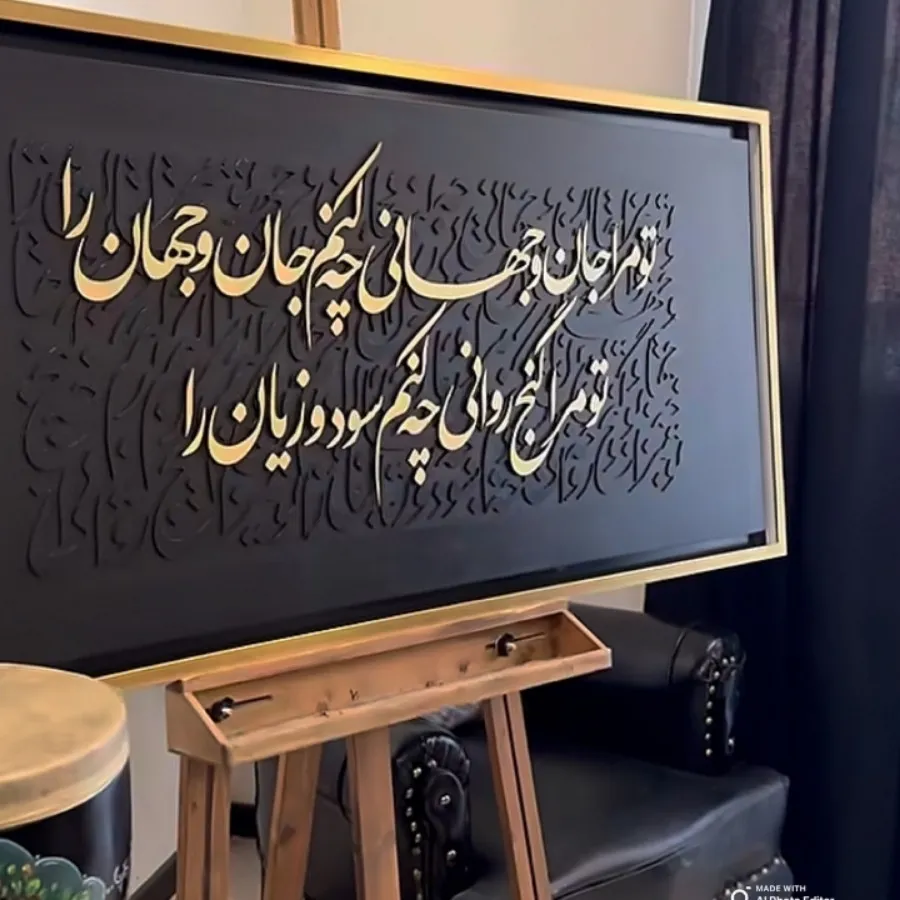 تو مرا جان و جهانی چه کنم جان و جهان را
تو مرا گنج روانی چه کنم سود و زیان را
MADE WITH
AI Photo Editor